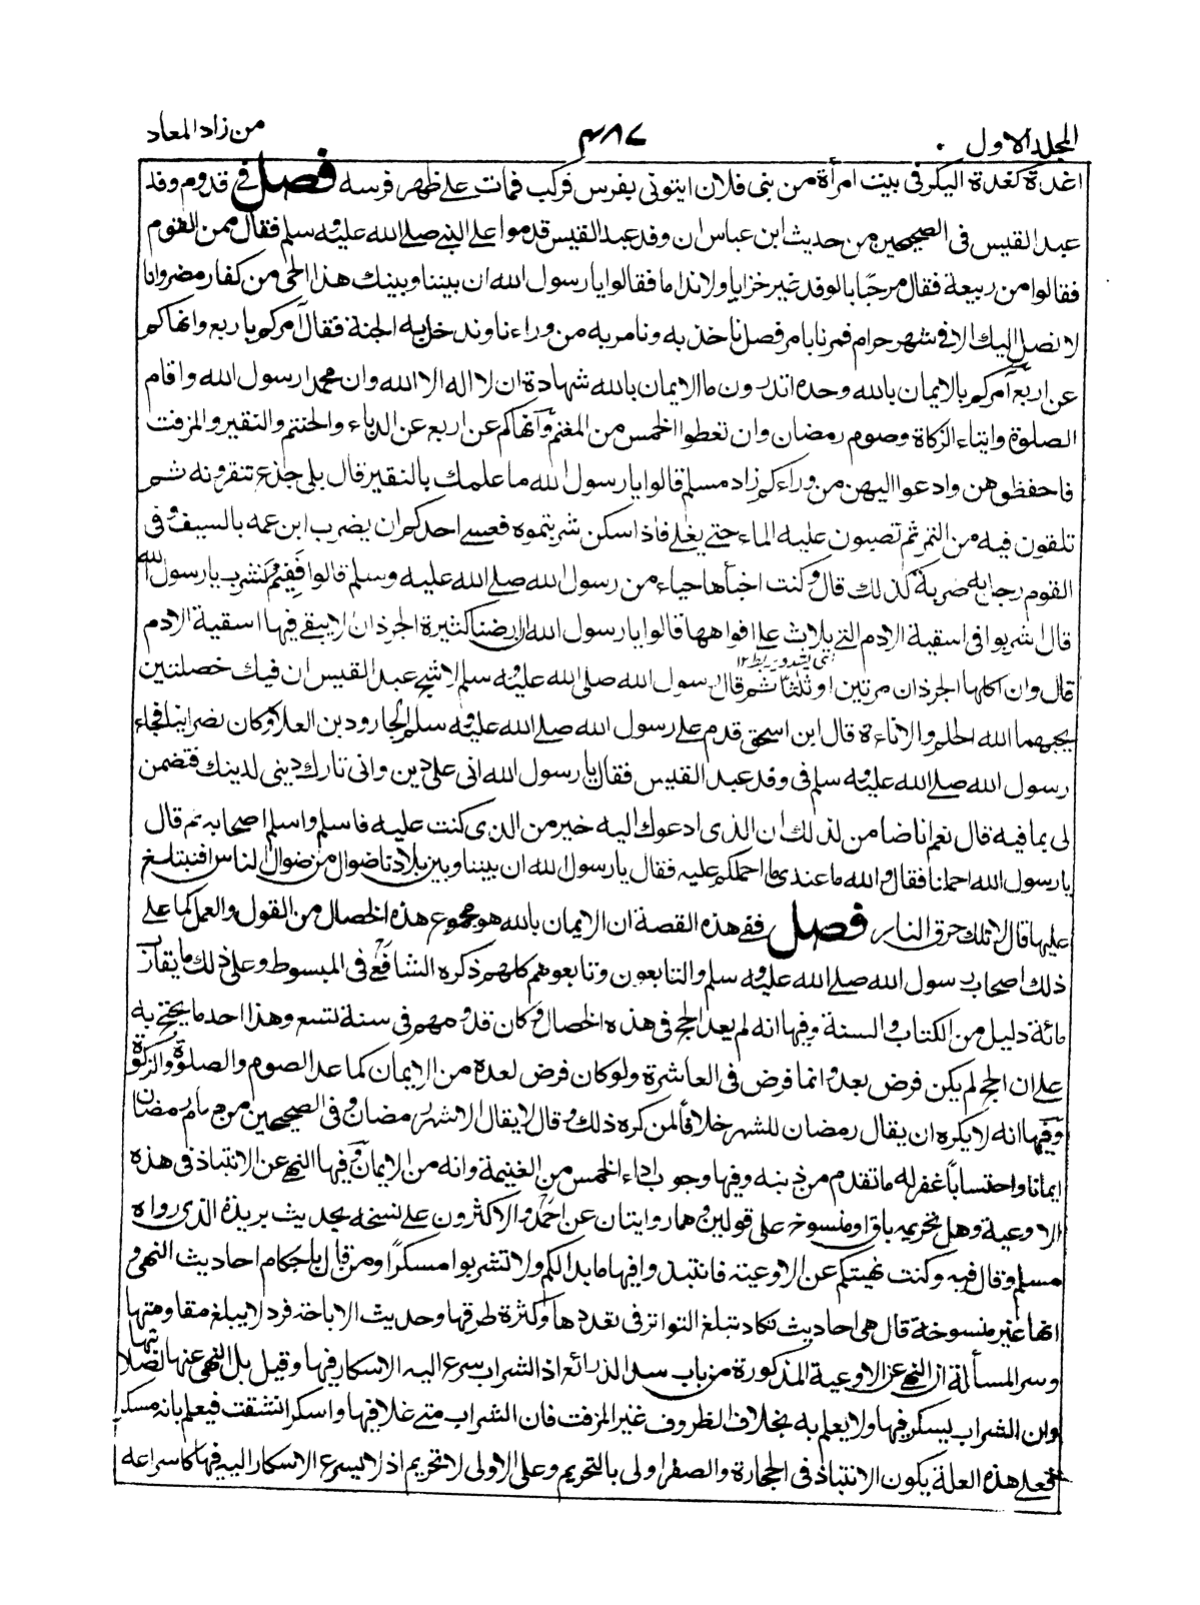 المجلد الاول
٤٨٧
من زاد المعاد
اغدة كغدة البكر فى بيت امرأة من بنى فلان ايتونى بفرس فركب فمات على ظهر فرسه فصل فى قدوم وفد
عبد القيس فى الصحيحين من حديث ابن عباس ان وفد عبد القيس قدموا على النبى صلى الله عليه وسلم فقال ممن القوم
فقالوا من ربيعة فقال مرحبًا بالوفد غير خزايا ولا ندامى فقالوا يا رسول الله ان بيننا وبينك هذا الحى من كفار مضر وانا
لا نصل اليك الا فى شهر حرام فمرنا بامر فصل ناخذ به ونامر به من وراءنا وندخل به الجنة فقال آمركم باربع وانهاكم
عن اربع آمركم بالايمان بالله وحده اتدرون ما الايمان بالله شهادة ان لا اله الا الله وان محمدا رسول الله واقام
الصلوة وايتاء الزكاة وصوم رمضان وان تعطوا الخمس من المغنم وآنهاكم عن اربع عن الدباء والحنتم والنقير والمزفت
فاحفظوهن وادعوا اليهن من وراءكم زاد مسلم قالوا يا رسول الله ما علمك بالنقير قال بلى جذع تنقرونه ثم
تلقون فيه من التمر ثم تصبون عليه الماء حتى يغلى فاذا سكن شربتموه فعسى احدكم ان يضرب ابن عمه بالسيف وفى
القوم رجل به ضربة كذلك قال وكنت اخبأها حياء من رسول الله صلى الله عليه وسلم قالوا ففيم نشرب يا رسول الله
قال اشربوا فى اسقية الادم التى يلاث على افواهها قالوا يا رسول الله ان ارضنا كثيرة الجرذان لا يبقى فيها اسقية الادم
قال وان اكلها الجرذان مرتين او ثلثا ثم قال رسول الله صلى الله عليه وسلم لاشج عبد القيس ان فيك خصلتين
يحبهما الله الحلم والاناءة قال ابن اسحق قدم على رسول الله صلى الله عليه وسلم الجارود بن العلاء وكان نصرانيا فجاء
رسول الله صلى الله عليه وسلم فى وفد عبد القيس فقال يا رسول الله انى على دين وانى تارك دينى لدينك فتضمن
لى بما فيه قال نعم انا ضامن لذلك ان الذى ادعوك اليه خير من الذى كنت عليه فاسلم واسلم اصحابه ثم قال
يا رسول الله احملنا فقال والله ما عندى ما احملكم عليه فقال يا رسول الله ان بيننا وبين بلادنا ضوال من ضوال الناس افنتبلغ
عليها قال لا تلك حرق النار فصل ففى هذه القصة ان الايمان بالله هو مجموع هذه الخصال من القول والعمل كما على
ذلك اصحاب رسول الله صلى الله عليه وسلم والتابعون وتابعوهم كلهم ذكره الشافعى فى المبسوط وعلى ذلك ما يقارب
مائة دليل من الكتاب والسنة وفيها انه لم يعد الحج فى هذه الخصال وكان قدومهم فى سنة تسع وهذا احد ما يحتج به
على ان الحج لم يكن فرض بعد وانما فرض فى العاشرة ولو كان فرض لعده من الايمان كما عد الصوم والصلوة والزكوة
وفيها انه لا يكره ان يقال رمضان للشهر خلافًا لمن كره ذلك وقال لا يقال الا شهر رمضان وفى الصحيحين من صام رمضان
ايمانا واحتسابًا غفر له ما تقدم من ذنبه وفيها وجوب اداء الخمس من الغنيمة وانه من الايمان وفيها النهى عن الانتباذ فى هذه
الاوعية وهل تحريمه باق او منسوخ على قولين وهما روايتان عن احمد والاكثرون على نسخه بحديث بريدة الذى رواه
مسلم وقال فيه وكنت نهيتكم عن الاوعية فانتبذوا فيها ما بدا لكم ولا تشربوا مسكرًا ومن قال باحكام احاديث النهى و
انها غير منسوخة قال هى احاديث تكاد تبلغ التواتر فى تعددها وكثرة طرقها وحديث الاباحة فرد لا يبلغ مقاومتها
وسر المسألة ان النهى عن الاوعية المذكورة من باب سد الذرائع اذ الشراب يسرع اليه الاسكار فيها وقيل بل النهى عنها لصلابتها
وان الشراب يسكر فيها ولا يعلم به بخلاف الظروف غير المزفت فان الشراب متى غلا فيها واسكر انشقت فيعلم بانه مسكر
فعلى هذه العلة يكون الانتباذ فى الحجارة والصفر اولى بالتحريم وعلى الاولى لا تحريم اذ لا يسرع الاسكار اليه فيها كاسراعه